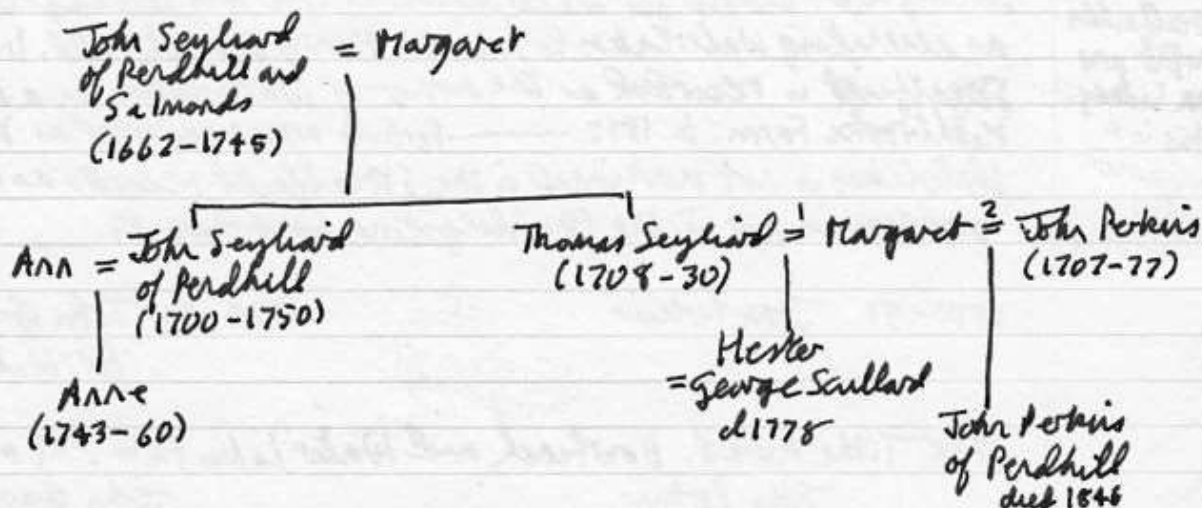 John Seyliard = Margaret
of Perdhill and
Salmonds
(1662-1745)
Ann = John Seyliard
of Perdhill
(1700-1750)
Thomas Seyliard =1 Margaret =2 John Perkins
(1708-30)
(1707-77)
Anne
(1743-60)
Hester
= George Scullard
d 1778
John Perkins
of Perdhill
died 1846